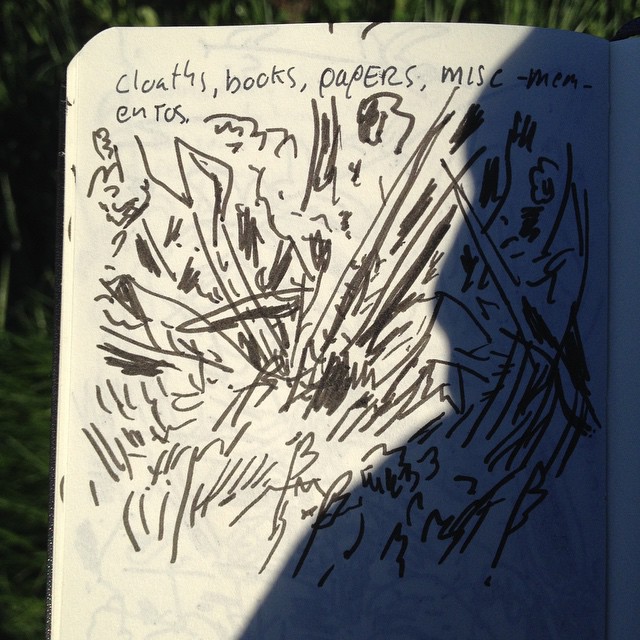 cloaths, books, papers, misc -mem-
entos.